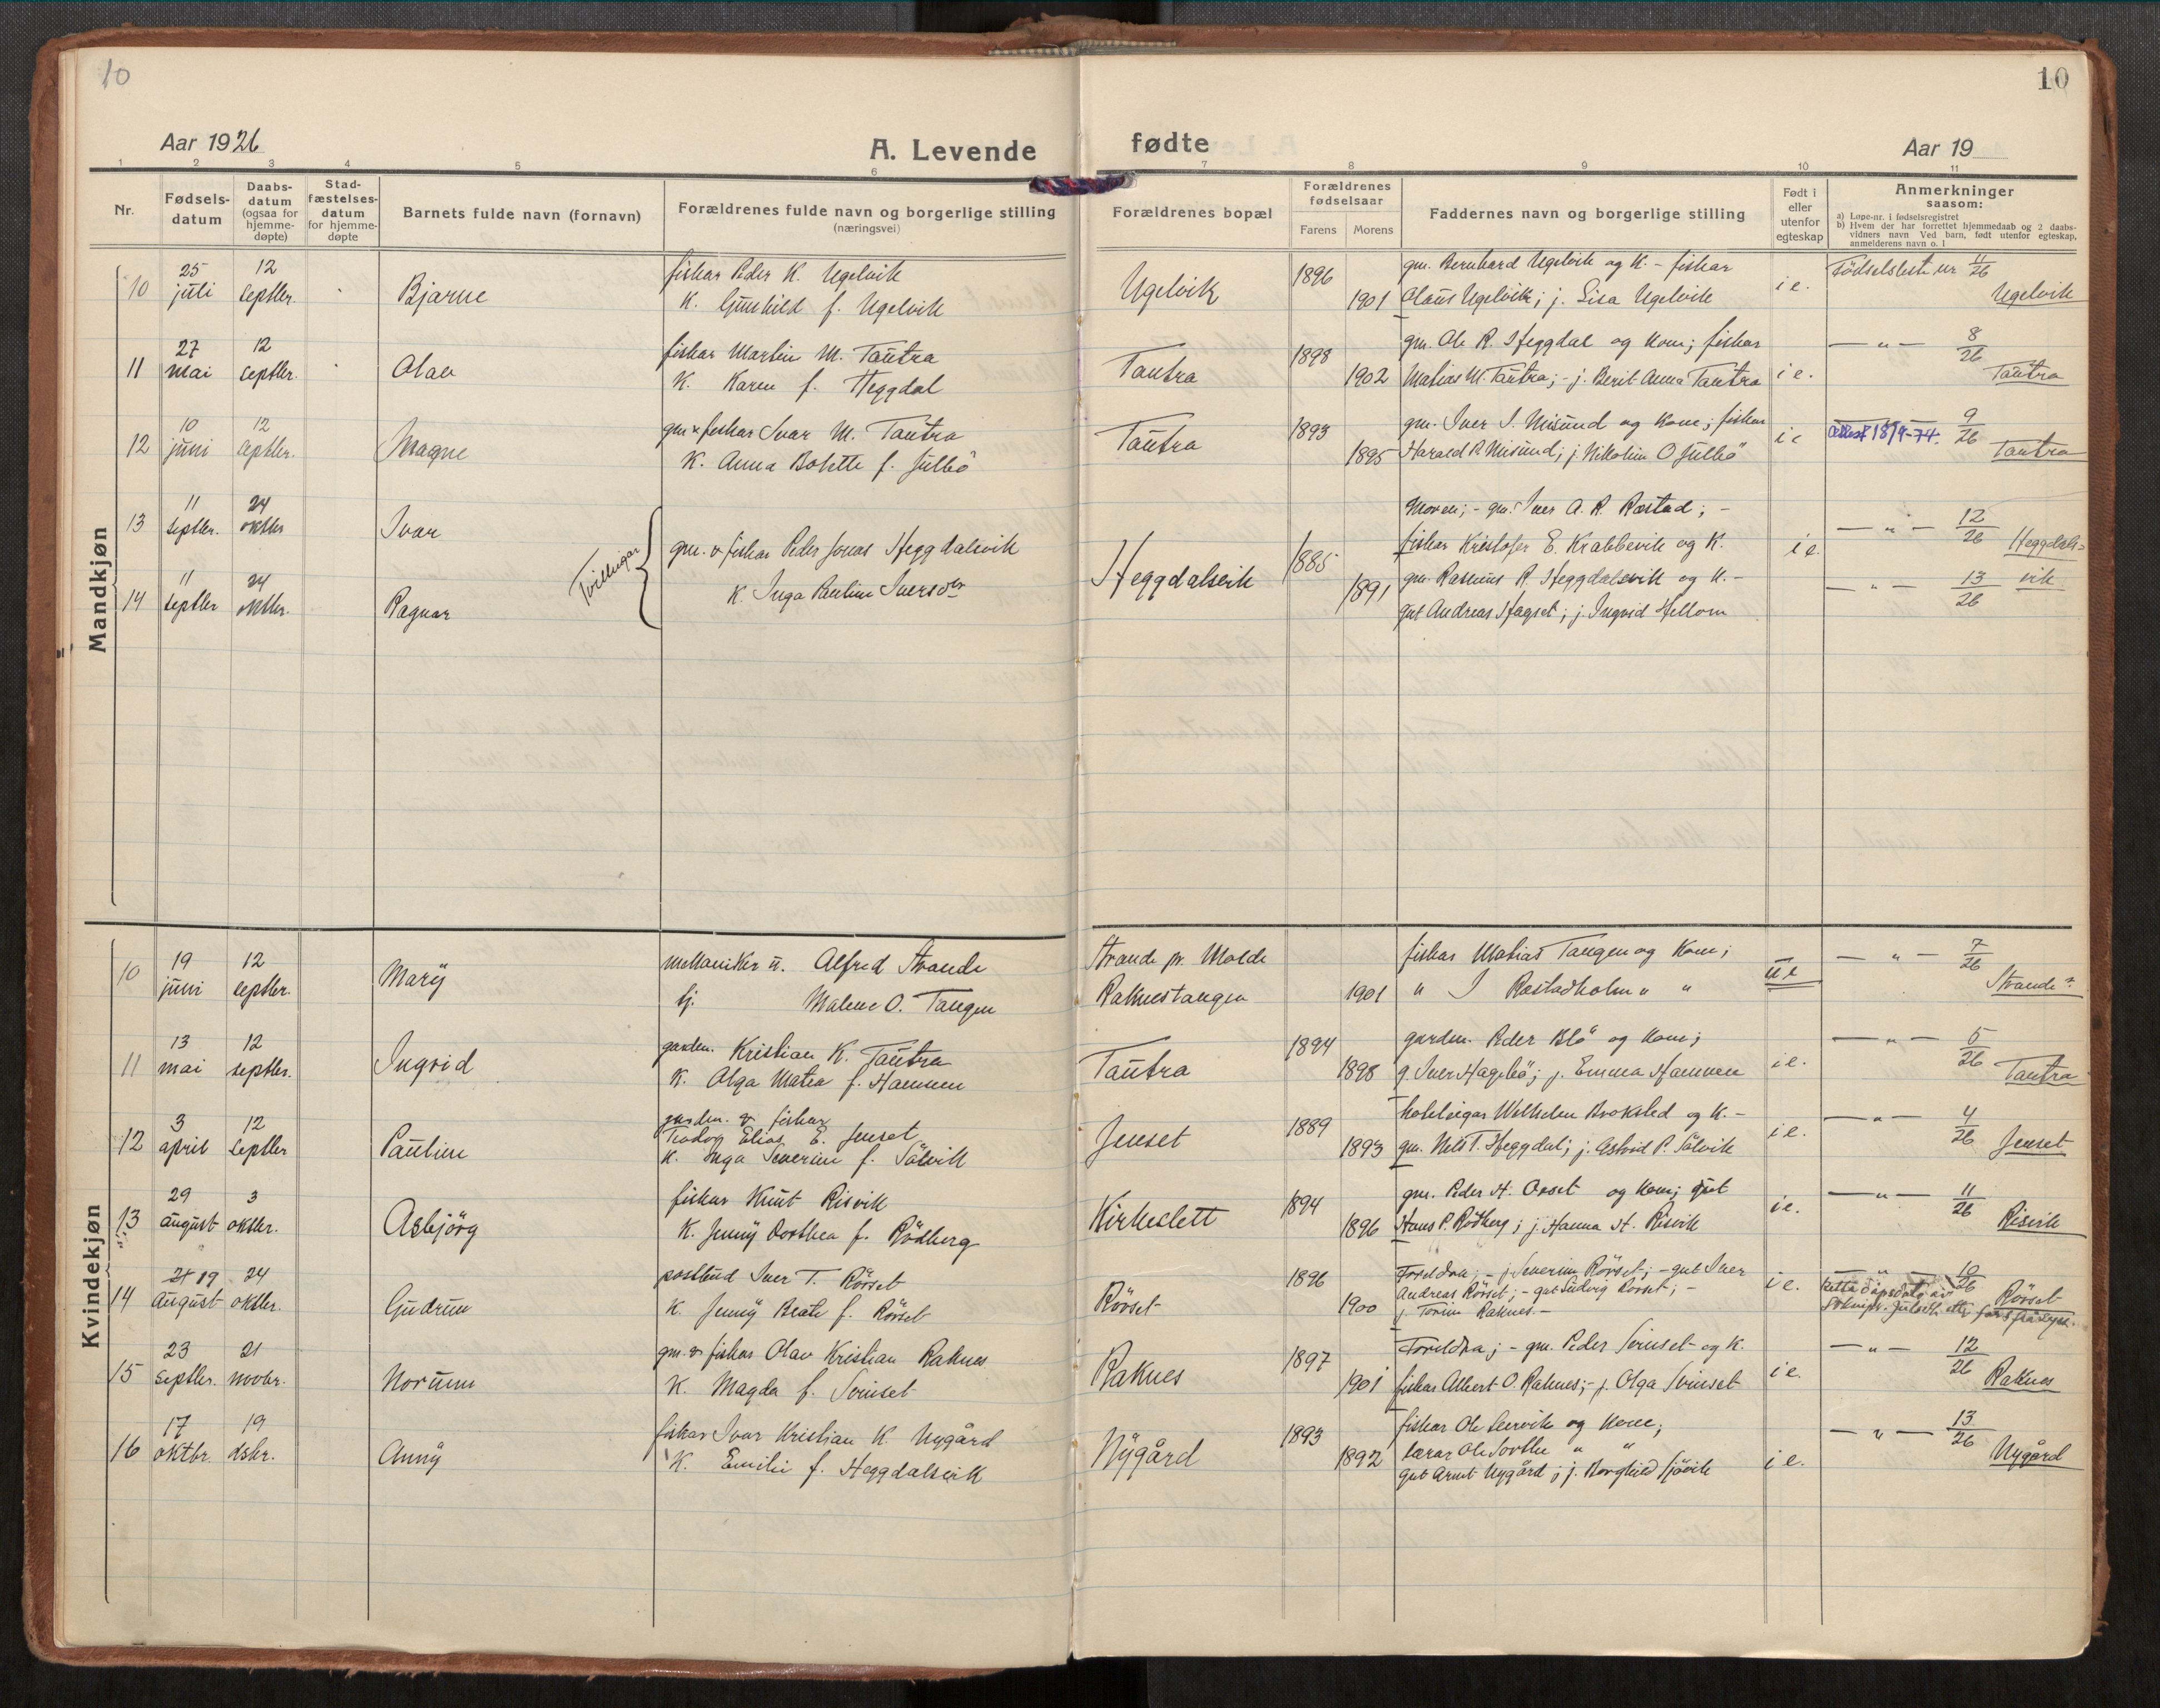 10
10
Aar 1926
A. Levende
fødte
Aar 19
1 2 3 4 5 6 7 8 9 10 11
Nr.
Fødsels-
datum
Daabs-
datum
(ogsaa for
hjemme-
døpte)
Stad-
fæstelses-
datum
for hjemme-
døpte
Barnets fulde navn (fornavn)
Forældrenes fulde navn og borgerlige stilling
(næringsvei)
Forældrenes bopæl
Forældrenes
fødselsaar
Farens Morens
Faddernes navn og borgerlige stilling
Født i
eller
utenfor
egteskap
Anmerkninger
saasom:
a) Løpe-nr. i fødselsregistret
b) Hvem der har forrettet hjemmedaab og 2 daabs-
vidners navn Ved barn, født utenfor egteskap,
anmelderens navn o. l
Mandkjøn
10 25 juli 12 septbr. Bjarne
fiskar Peder K. Ugelvik
K. Gunhild f. Ugelvik
Ugelvik 1896 1901
gm. Bernhard Ugelvik og K. - fiskar
Olaus Ugelvik; j. Lisa Ugelvik
i e. Fødselsliste nr 11/26 Ugelvik
11 27 mai 12 septbr. Olav
fiskar Martin M. Tautra
K. Karen f. Heggdal
Tautra 1898 1902
gm. Ole R. Heggdal og Kone; fiskar
Matias M. Tautra; - j. Berit Anna Tautra
i e. — " — 8/26 Tautra
12 10 juni 12 septbr. Magne
gm & fiskar Ivar M. Tautra
K. Anna Bolette f. Julbö
Tautra 1893 1895
gm. Iver I. Misund og Kone; fiskar
Harald P. Misund; j. Nikolin O Julbö
i e 9/26 Tautra
13 11 septbr. 24 oktbr Ivar
14 11 septbr 24 oktbr. Ragnar
Tvillingar
gm. & fiskar Peder Jonas Heggdalsvik
K. Inga Pauline Iversdtr
Heggdalsvik 1885 1891
Moren; - gm. Iver A. R. Røstad; -
fiskar Kristofer E. Krabbevik og K.
gm. Rasmus R. Heggdalsvik og K. -
gut Andreas Hagset; j. Ingrid Hellom
i e. — " — 12/26 Heggdals-
— " — 13/26 vik
Kvindekjøn
10 19 juni 12 septbr. Mary
mekaniker u. Alfred Strande
tj. Malene O. Tangen
Strande pr. Molde
Raknestangen 1901
fiskar Matias Tangen og Kone;
" I Røstadholm " "
u e — " — 7/26 Strande
11 13 mai 12 septbr. Ingrid
garden. Kristian K. Tautra
K. Olga Matea f. Hammen
Tautra 1894 1898
garden. Peder Blö og Kone;
g. Iver Hagebö; j. Emma Hammen
i e. — " — 5/26 Tautra
12 3 april 12 septbr Pauline
garden. & fiskar
Teodor Elias E. Jenset
K. Inga Severine f. Sölvik
Jenset 1889 1893
hoteleigar Wilhelm Brokstad og K. -
gm. Nels T. Heggdal; j. Astrid P. Sölvik
i e. — " — 4/26 Jenset
13 29 august 3 oktbr. Asbjörg
fiskar Knut Risvik
K. Jenny Dorthea f. Rödberg
Kirkeslett 1894 1896
gm. Peder H. Orset og Kone; gut
Hans P. Rödberg; j. Hanna H. Risvik
i e. — " — 11/26 Risvik
14 21 19 August 24 oktbr. Gudrun
postbud Iver T. Rörset
K. Jenny Beate f. Rörset
Rörset 1896 1900
Foreldra; - j. Severine Rörset; - gut Iver
Andreas Rörset; - gut Ludvig Rörset; -
j. Torine Raknes. -
i e. — " — 10/26 Rörset
15 23 septbr. 21 novbr. Norunn
gm. & fiskar Olav Kristian Raknes
K. Magda f. Svinset
Raknes 1897 1901
Foreldra; - gm. Peder Svinset og K.
fiskar Albert O. Raknes; - j. Olga Svinset
i e. — " — 12/26 Raknes
16 17 oktbr. 19 dsbr. Anny
fiskar Ivar Kristian K. Nygård
K. Emilie f. Heggdalsvik
Nygård 1893 1892
fiskar Ole Leervik og Kone;
lærar Ole Sorthe " "
gut Arnt Nygård; j. Borghild Sjövik
i e. — " — 13/26 Nygård